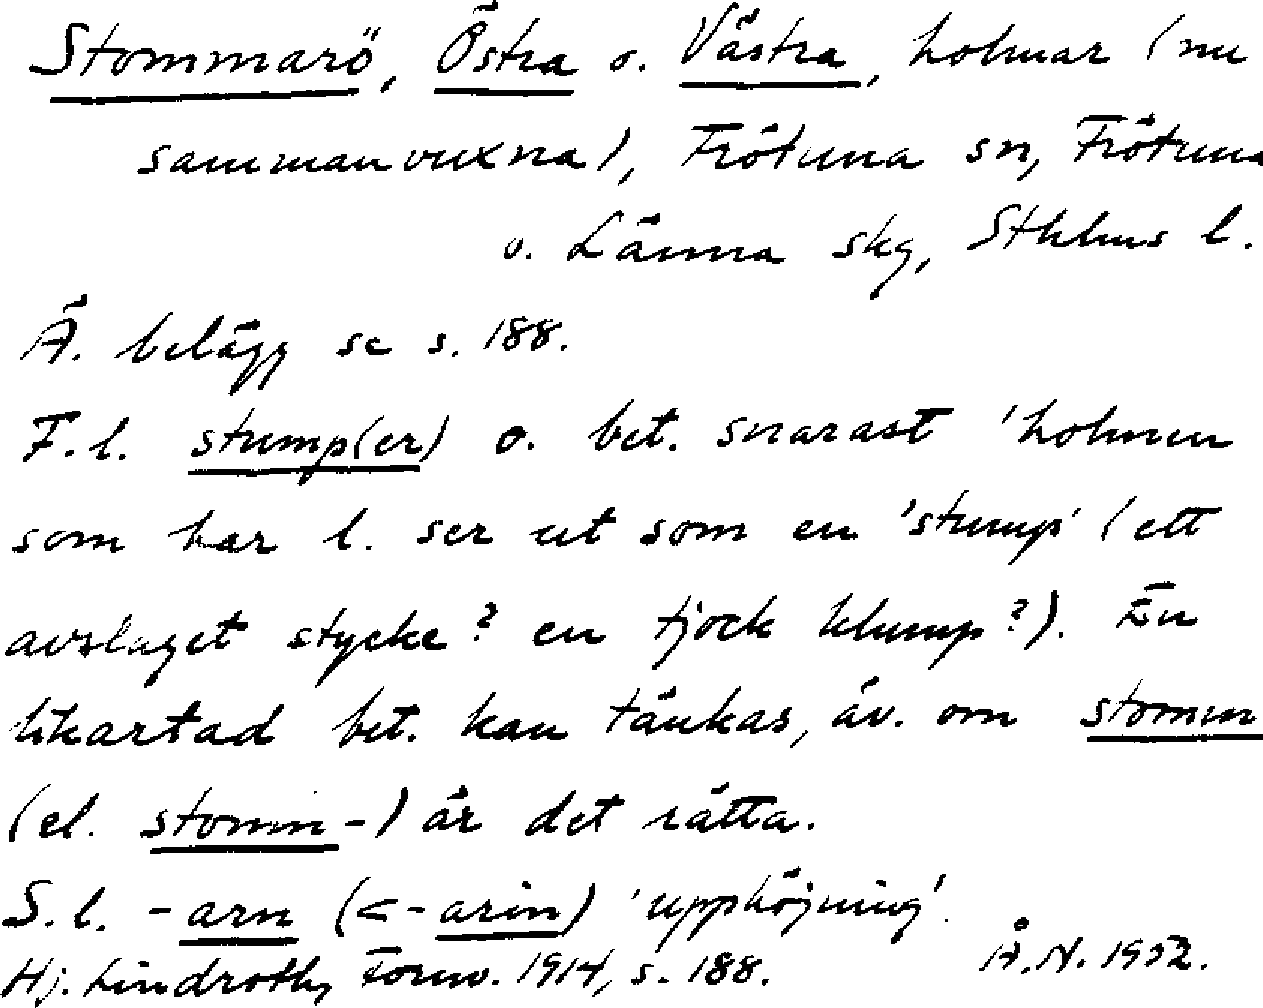 Stommarö, Östra o. Västra, holmar (nu
sammanvuxna), Frötuna sn, Frötuna
o. Länna skg, Sthlms l.
Ä. belägg se s. 188.
F.l. stump(er) o. bet. snarast 'holmen
som har l. ser ut som en 'stump' (ett
avslaget stycke? en tjock klump?). En
likartad bet. kan tänkas, äv. om stomm
(el. stomm-) är det rätta.
S.l. -arn (<-arin) 'upphöjning'.
Hj. Lindroth, Fornv. 1914, s. 188.
Å.N. 1932.